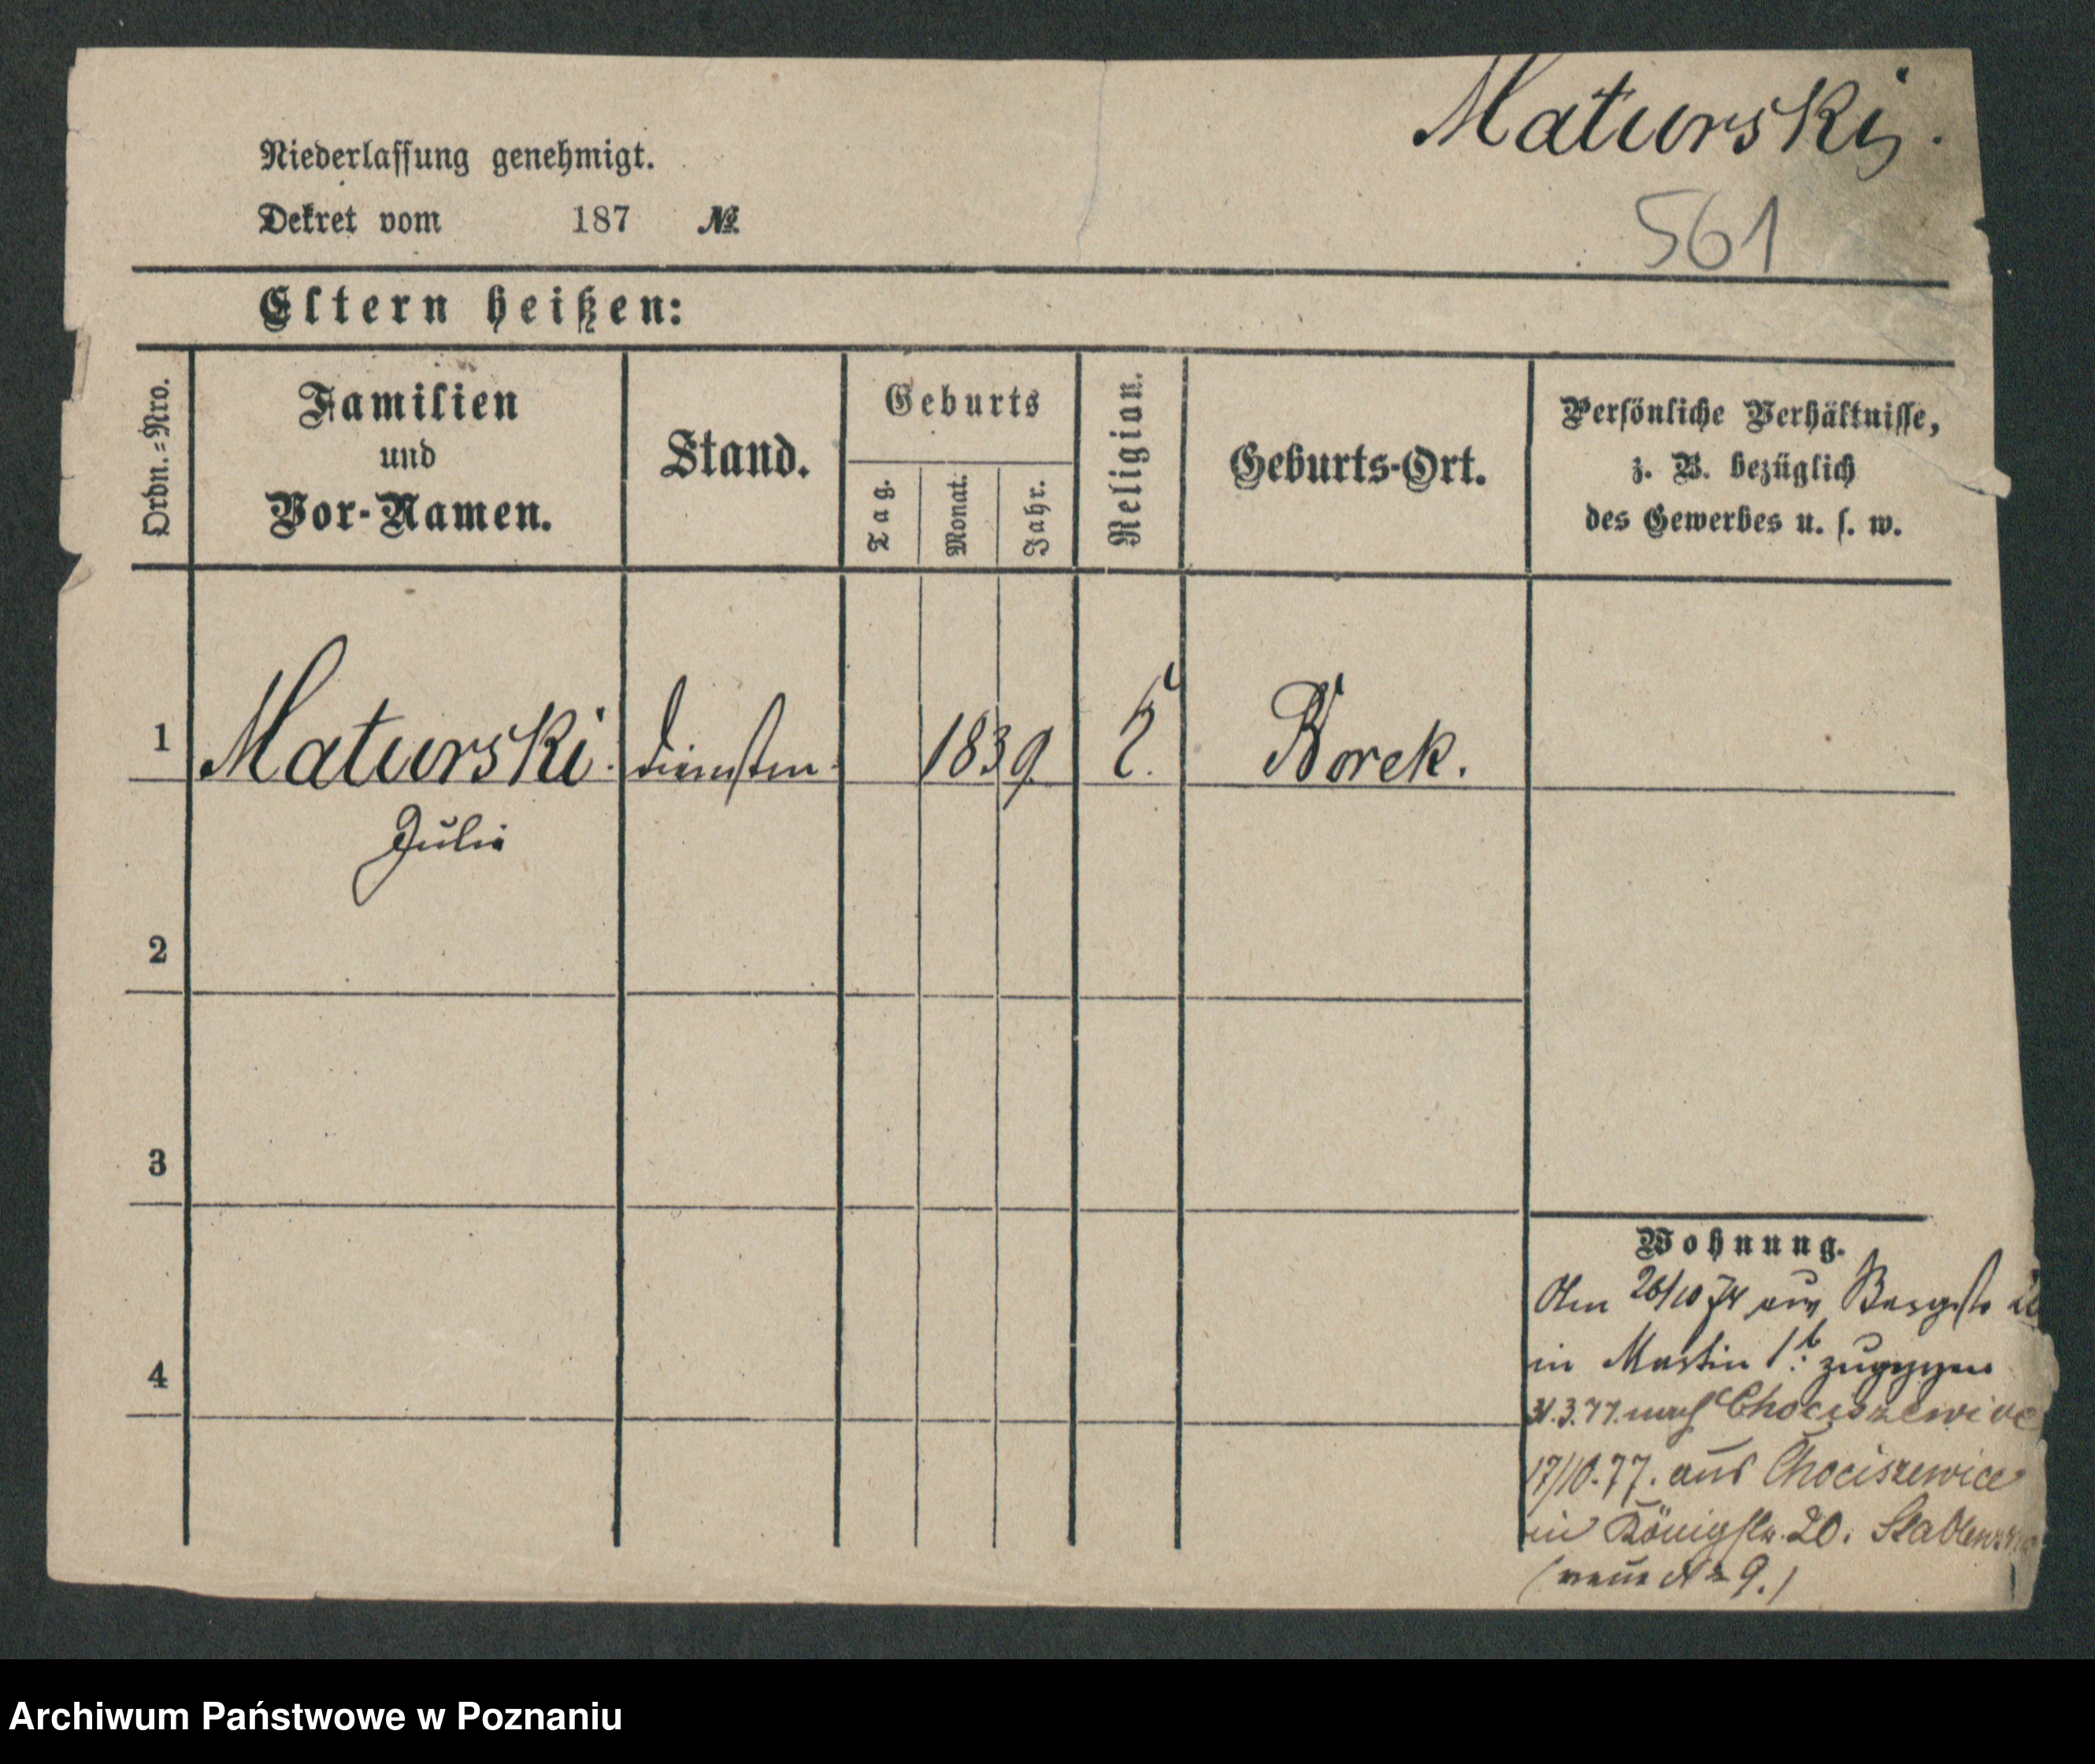 Maturski.
561
Niederlassung genehmigt.
Dekret vom 187 №
Eltern heißen:
Ordn.=Nro.
Familien
und
Vor-Namen.
Stand.
Geburts
Tag.
Monat.
Jahr.
Religion.
Geburts-Ort.
Persönliche Verhältnisse,
z. B. bezüglich
des Gewerbes u. s. w.
1 Maturski. 1839. Borek.
Julie
2
3
4
Wohnung.
Am 26/10 74 aus Bergstr
in Martin 1 zugezogen
31.3.77. nach Chociszewice
17/10.77. aus Chociszewice
in Königstr. 20.
(neue № 9.)
Archiwum Państwowe w Poznaniu